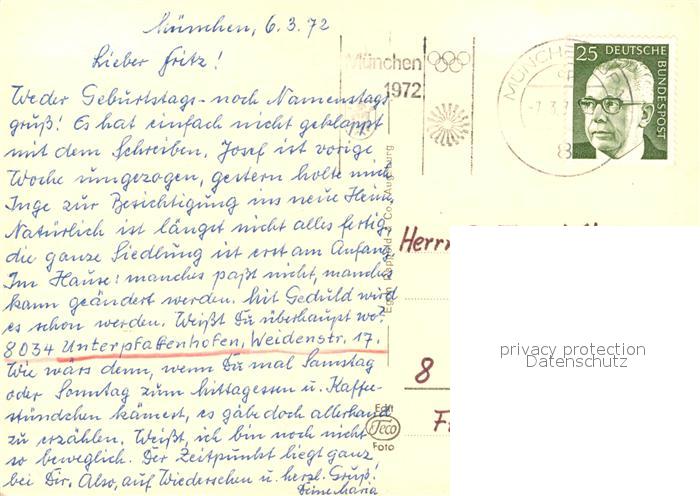 München, 6.3.72
Lieber Fritz!
Weder Geburtstags- noch Namenstags-
gruß! Es hat einfach nicht geklappt
mit dem Schreiben. Josef ist vorige
Woche umgezogen, gestern holte mich
Inge zur Besichtigung ins neue Heim.
Natürlich ist längst nicht alles fertig,
die ganze Siedlung ist erst am Anfang.
Im Hause: manches paßt nicht, manches
kann geändert werden. Mit Geduld wird
es schon werden. Weißt Du überhaupt wo?
8034 Unterpfaffenhofen, Weidenstr. 17.
Wie wärs denn, wenn Du mal Samstag
oder Sonntag zum Mittagessen u. Kaffee-
stündchen kämest, es gäbe doch allerhand
zu erzählen. Weißt, ich bin noch nicht
so beweglich. Der Zeitpunkt liegt ganz
bei Dir. Also, auf Wiedersehen u. herzl. Gruß!
Deine Maria
München
1972
MÜNCHE
8
25 DEUTSCHE
BUNDESPOST
Herrn
8
F
Edit
Teco
Foto
privacy protection
Datenschutz